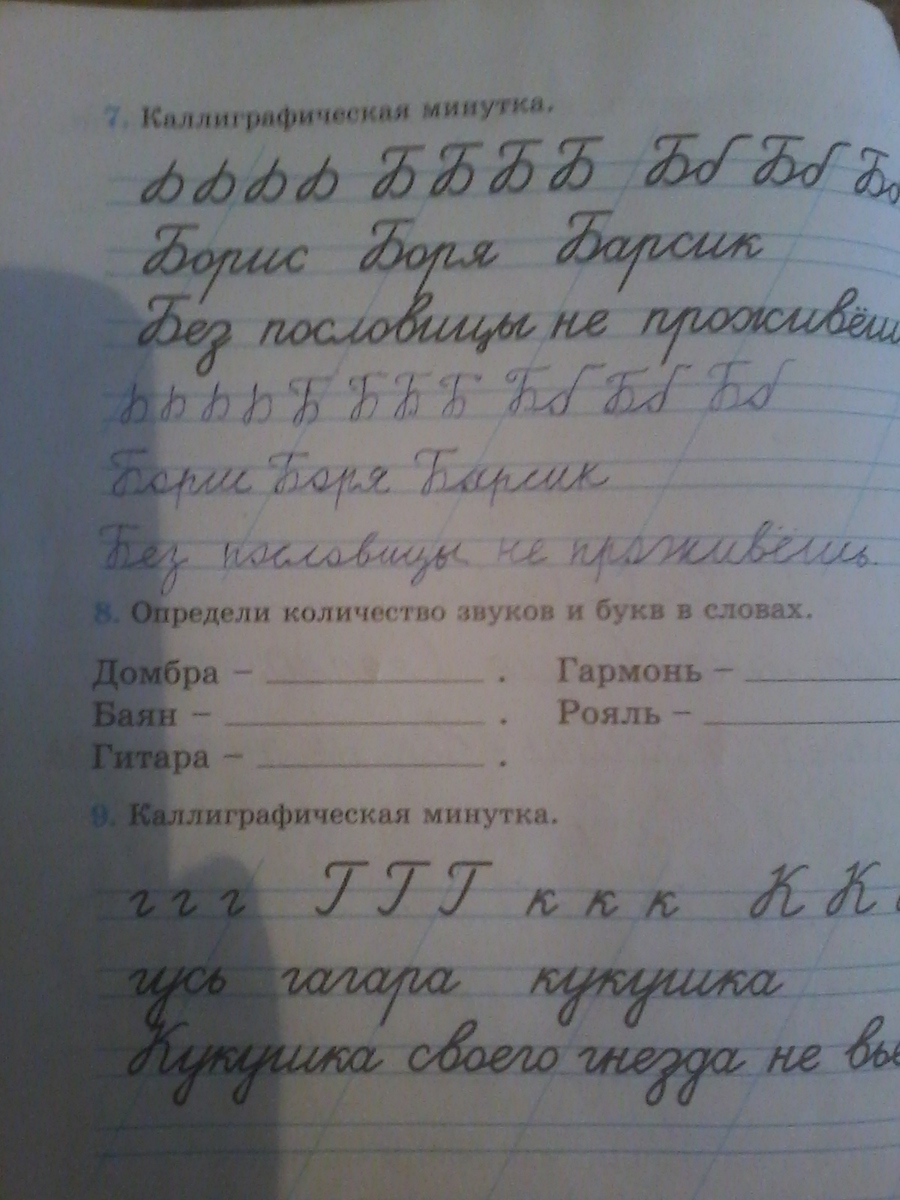 7. Каллиграфическая минутка.
Б Б Б Б Бб Бб
Борис Боря Барсик
Без пословицы не
Б Б Б Б Бб Бб Бб
Борис Боря Барсик
Без пословицы не проживёшь.
8. Определи количество звуков и букв в словах.
Домбра – . Гармонь –
Баян – . Рояль –
Гитара – .
9. Каллиграфическая минутка.
г г г Г Г Г к к к К К
гусь гагара кукушка
Кукушка своего гнезда не